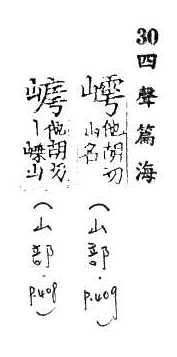 30四聲篇海
㟧他胡切
山名
(山部·P.409)
他胡切
丨嵘山
(山部·P.408)